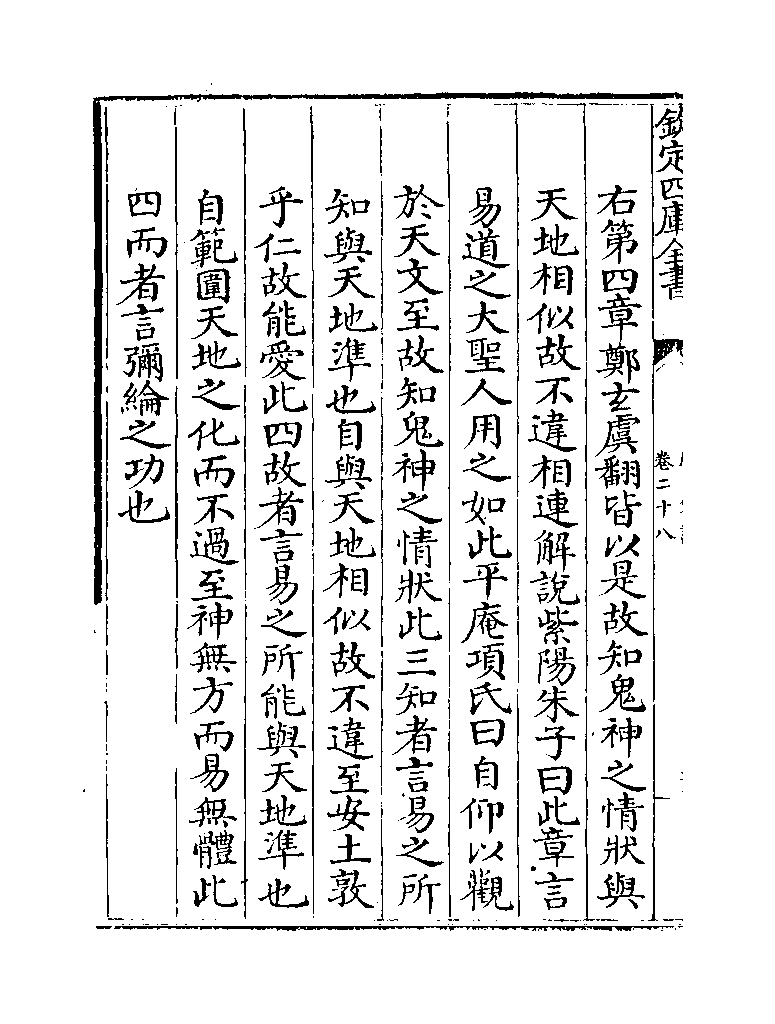 欽定四庫全書
卷二十八
右第四章鄭玄虞翻皆以是故知鬼神之情狀與
天地相似故不違相連解說紫陽朱子曰此章言
易道之大聖人用之如此平庵項氏曰自仰以觀
於天文至故知鬼神之情狀此三知者言易之所
知與天地準也自與天地相似故不違至安土敦
乎仁故能愛此四故者言易之所能與天地準也
自範圍天地之化而不過至神無方而易無體此
四而者言彌綸之功也